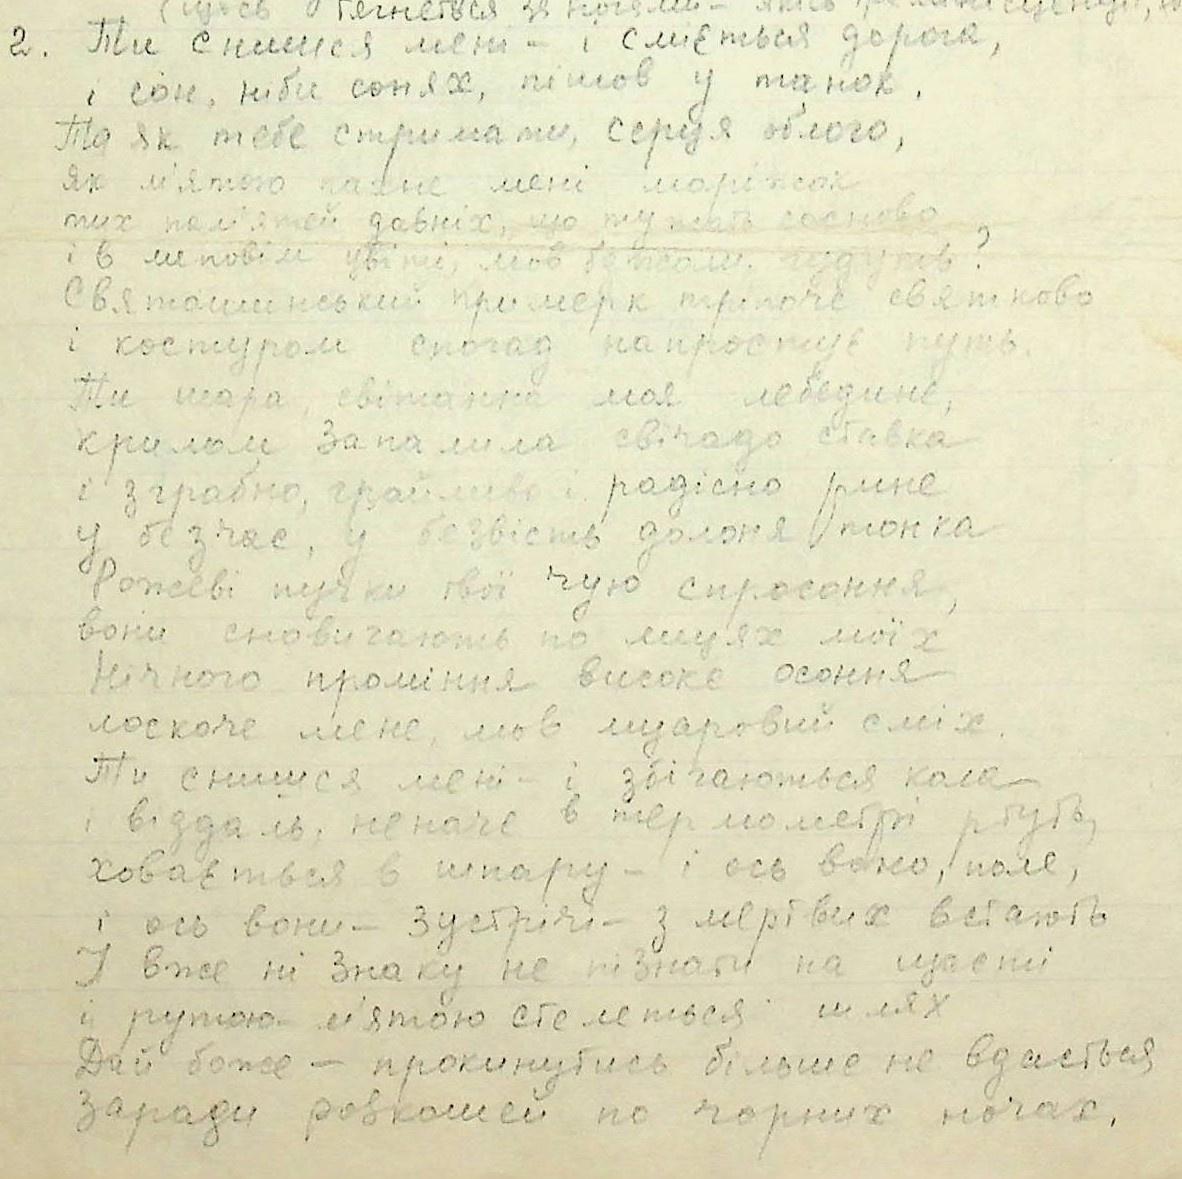 (щось тягнеться за ногами — якісь
2. Ти снишся мені — і сміється дорога,
і сон, ніби сонях, пішов у танок.
Та як тебе стримати, серця облого,
як м'ятою пахне мені моріжок
тих пам'ятей давніх, що тужать сосново
і в липовім цвіті, мов бджоли, гудуть?
Святошинський примерк тріпоче святково
і костуром спогад напростує путь.
Ти шара, світанна моя лебедине,
крилом запалила свічадо ставка
і зграбно, грайливо і радісно рине
у безчас, у безвість долоня тонка
Рожеві пучки твої чую спросоння,
вони сновигають по лицях моїх
Нічного проміння високе осоння
лоскоче мене, мов муаровий сміх.
Ти снишся мені — і збігаються кола
і віддаль, неначе в термометрі ртуть,
ховається в шпару — і ось воно, поле,
і ось вони — зустрічі — з мертвих встають
І вже ні знаку не пізнати на щасті
і рутою-м'ятою стелеться шлях
Дай боже — прокинутись більше не вдасться
заради розкошей по чорних ночах.